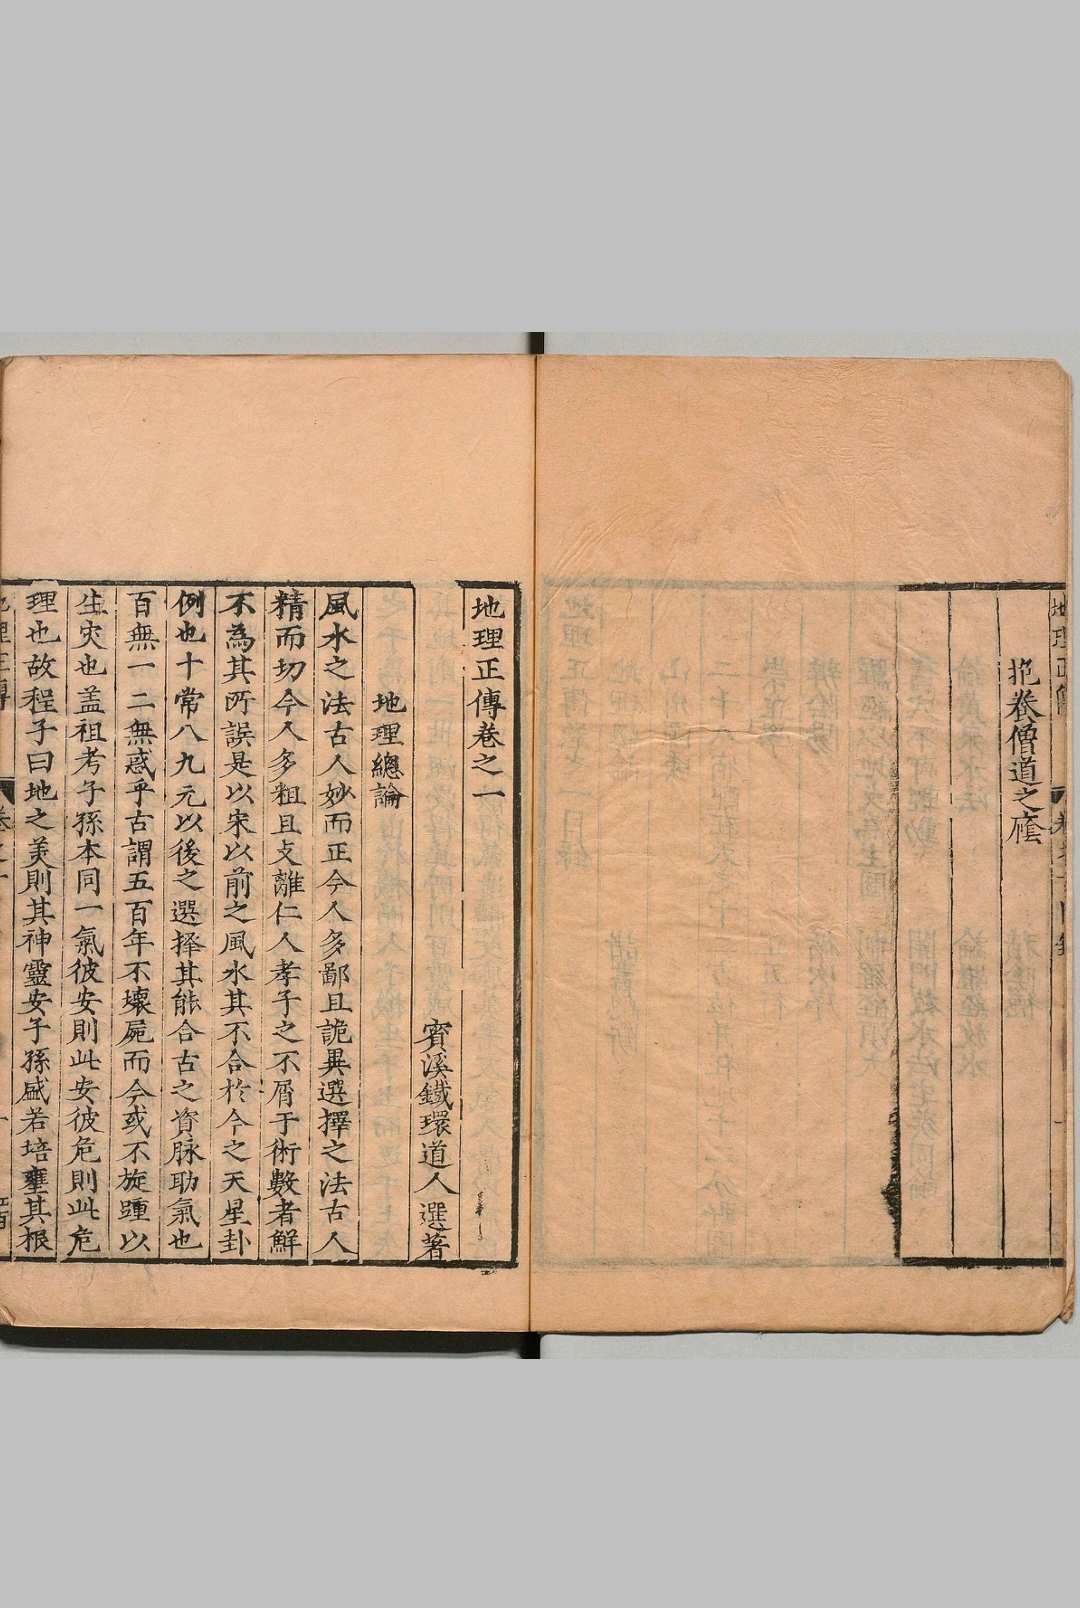 抱養僧道之䕃
地理正傳卷之一
賓溪鐵環道人選著
地理總論
風水之法古人妙而正今人多鄙且詭異選擇之法古人
精而切今人多粗且支離仁人孝子之不屑于術數者鮮
不為其所誤是以宋以前之風水其不合於今之天星卦
例也十常八九元以後之選择其能合古之資脉助氣也
百無一二無惑乎古謂五百年不壞屍而今或不旋踵以
生灾也盖祖考子孫本同一氣彼安則此安彼危則此危
理也故程子曰地之羙則其神靈安子孫盛若培壅其根